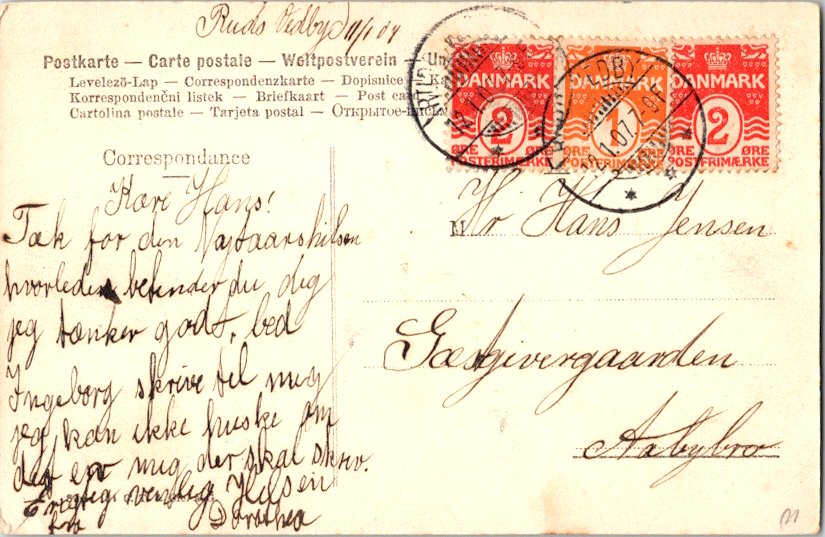 Ruds Vedby 11/1 07
Postkarte — Carte postale — Weltpostverein — Un
Levelező-Lap — Correspondenzkarte — Dopisnice
Korrespondenční listek — Briefkaart — Post card
Cartolina postale — Tarjeta postal — Открытое
Correspondance
DANMARK
2
ØRE ØRE
POSTFRIMÆRKE
DANMARK
1
DANMARK
2
ØRE ØRE
POSTFRIMÆRKE
VEDBY
1.07.7-9F
Kære Hans!
Tak for den Nytaarshilsen
hvorledes befinder du dig
jeg tænker godt, bed
Ingeborg skrive til mig
jeg kan ikke huske om
det er mig der skal skriv.
venlig Hilsen
fra Dorothea
M
Hr Hans Jensen
Gæstgivergaarden
Aabybro